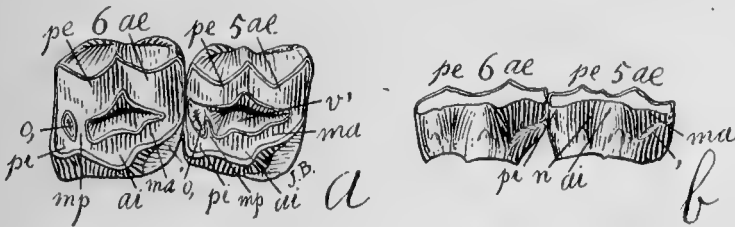 pe 6 ae pe 5 ae
v'
o, ma
pi mp ai ma' o, pi mp ai J.B. a
pe 6 ae pe 5 ae
ma
pi n ai ,
b